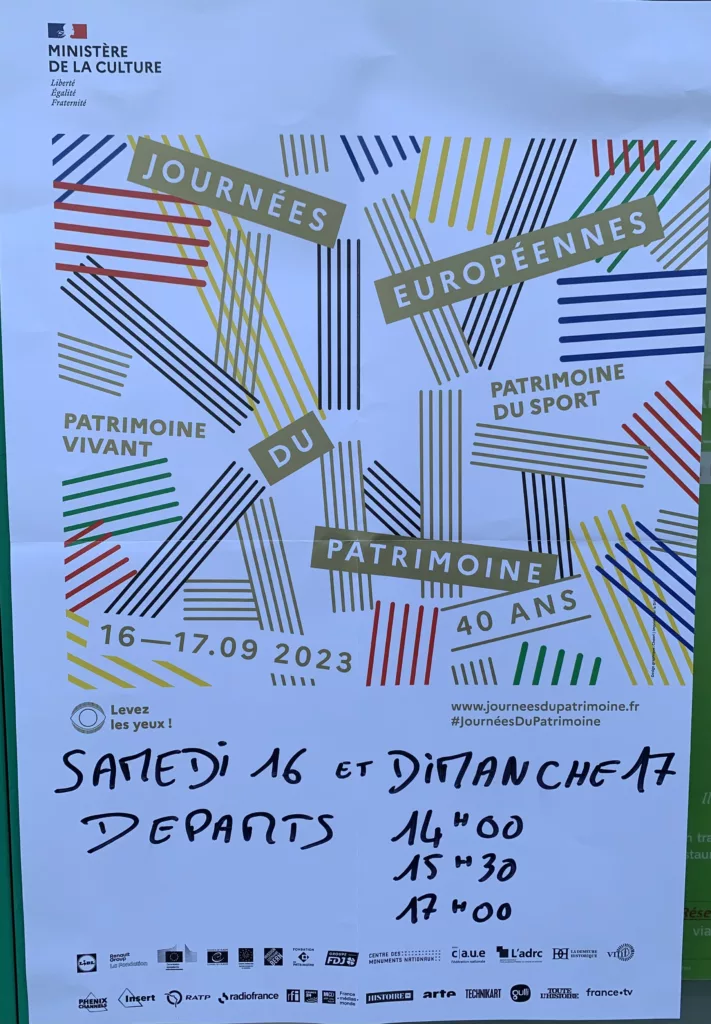 MINISTÈRE
DE LA CULTURE
Liberté
Égalité
Fraternité
JOURNÉES
EUROPÉENNES
PATRIMOINE
DU SPORT
PATRIMOINE
VIVANT
DU
PATRIMOINE
40 ANS
16—17.09 2023
Levez
les yeux !
www.journeesdupatrimoine.fr
#JournéesDuPatrimoine
SAMEDI 16 ET DIMANCHE 17
DEPARTS 14H00
15H30
17H00
LIDL
Renault Group
La Fondation
GROUPE FDJ
CENTRE DES
MONUMENTS NATIONAUX
c|a.u.e
L'adrc
LA DEMEURE
HISTORIQUE
VMF
PHENIX
CHANNELS
insert
RATP
radiofrance
rfi
MCD
France
médias
monde
HISTOIRE
arte
TECHNIKART
gulli
TOUTE
L'HISTOIRE
france•tv